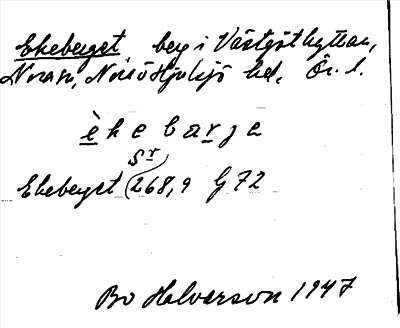 Ekeberget, berg i Västgöthyttan,
Nora sn, Nora o Hjulsjö hd, Ör. l.
èkebarja
Sr
Ekeberget (268,9 G72
Bo Halvarson 1947